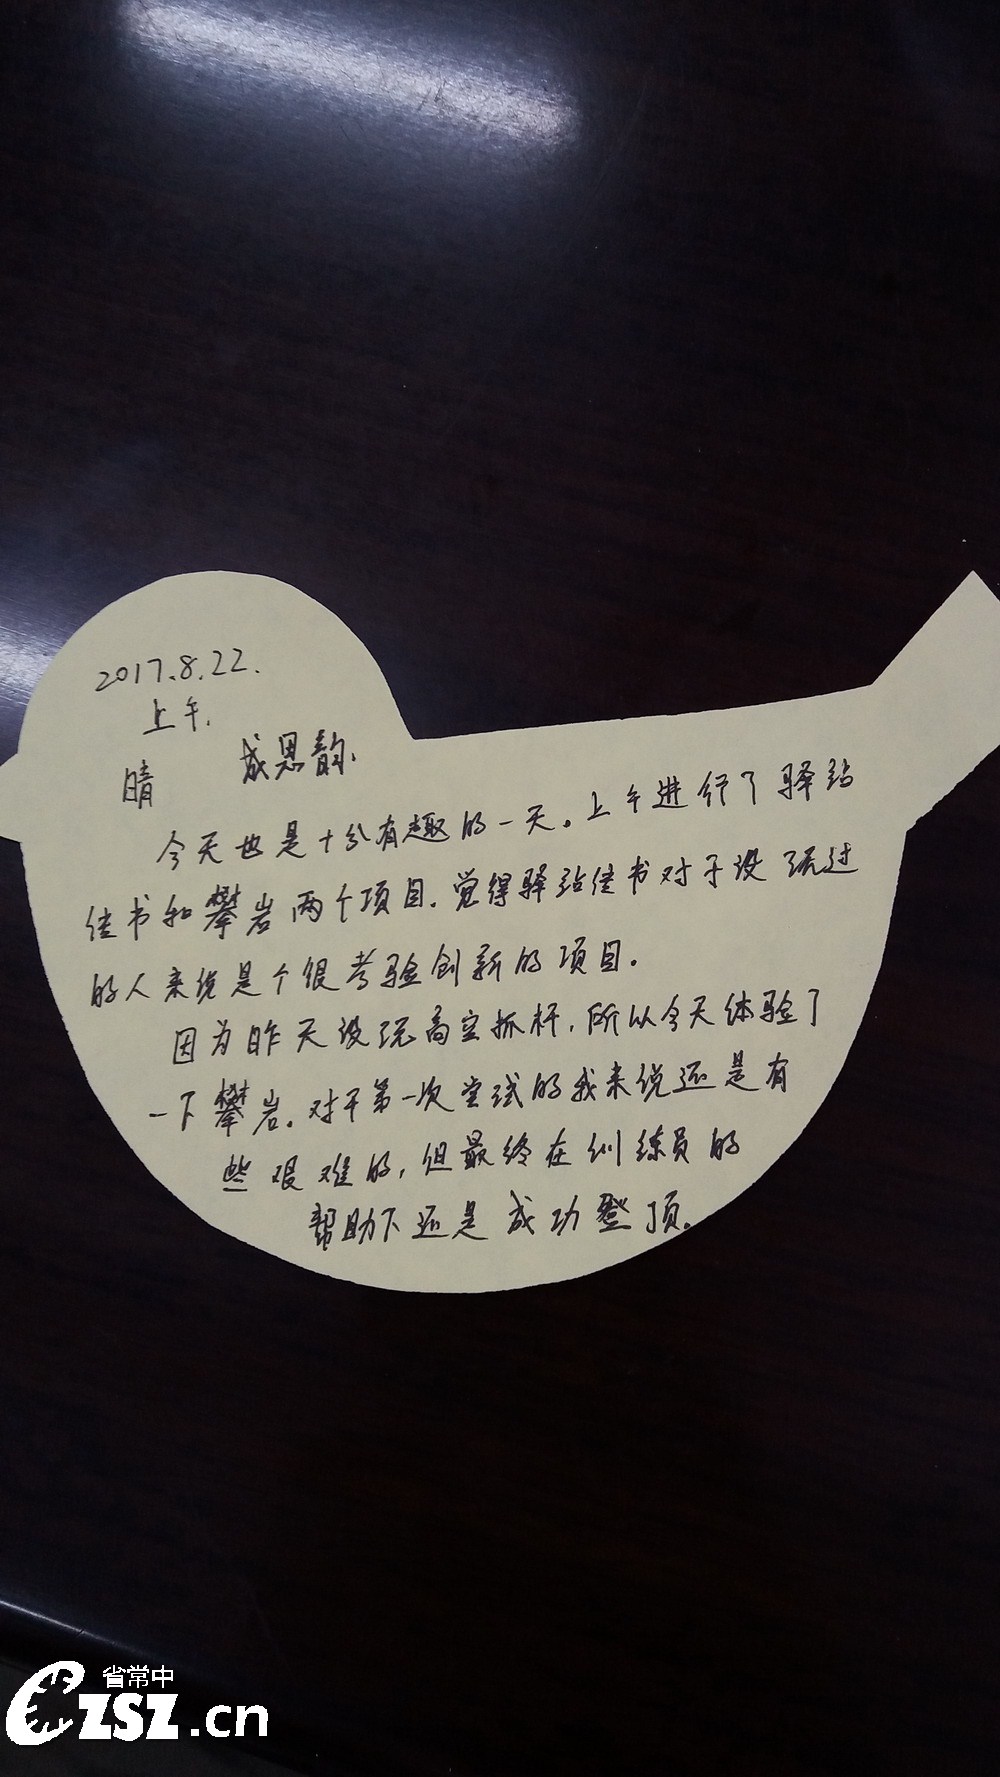 2017.8.22.
上午.
晴 成思韵.
今天也是十分有趣的一天。上午进行了驿站
传书和攀岩两个项目.觉得驿站传书对于没玩过
的人来说是个很考验创新的项目。
因为昨天没玩高空抓杆,所以今天体验了
一下攀岩。对于第一次尝试的我来说还是有
些艰难的,但最终在训练员的
帮助下还是成功登顶。
省常中
CZSZ.cn